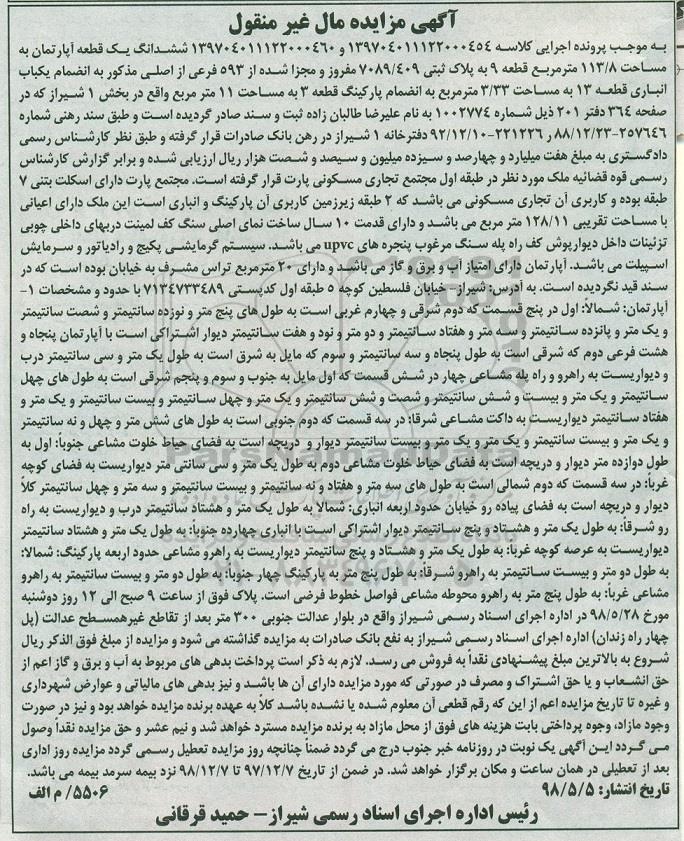 آگهی مزایده مال غیر منقول
به موجب پرونده اجرایی کلاسه ۱۳۹۷۰۴۰۱۱۱۲۲۰۰۰۴۵۴ و ۱۳۹۷۰۴۰۱۱۱۲۲۰۰۰۴۶۰ ششدانگ یک قطعه آپارتمان به
مساحت ۱۱۳/۸ مترمربع قطعه ۹ به پلاک ثبتی ۷۰۸۹/۴۰۹ مفروز و مجزا شده از ۵۹۳ فرعی از اصلی مذکور به انضمام یکباب
انباری قطعه ۱۳ به مساحت ۳/۳۳ مترمربع به انضمام پارکینگ قطعه ۳ به مساحت ۱۱ متر مربع واقع در بخش ۱ شیراز که در
صفحه ۳۶۴ دفتر ۲۰۱ ذیل شماره ۱۰۰۲۷۷۴ به نام علیرضا طالبان زاده ثبت و سند صادر گردیده است و طبق سند رهنی شماره
۲۵۷۶۴۶-۸۸/۱۲/۲۳ و ۲۲۱۲۲۶-۹۲/۱۲/۱۰ دفترخانه ۱ شیراز در رهن بانک صادرات قرار گرفته و طبق نظر کارشناس رسمی
دادگستری به مبلغ هفت میلیارد و چهارصد و سیزده میلیون و سیصد و شصت هزار ریال ارزیابی شده و برابر گزارش کارشناس
رسمی قوه قضائیه ملک مورد نظر در طبقه اول مجتمع تجاری مسکونی پارت قرار گرفته است. مجتمع پارت دارای اسکلت بتنی ۷
طبقه بوده و کاربری آن تجاری مسکونی می باشد که ۲ طبقه زیرزمین کاربری آن پارکینگ و انباری است این ملک دارای اعیانی
با مساحت تقریبی ۱۲۸/۱۱ متر مربع می باشد و دارای قدمت ۱۰ سال ساخت نمای اصلی سنگ کف لمینت دربهای داخلی چوبی
تزئینات داخل دیوارپوش کف راه پله سنگ مرغوب پنجره های upvc می باشد. سیستم گرمایشی پکیج و رادیاتور و سرمایش
اسپیلت می باشد. آپارتمان دارای امتیاز آب و برق و گاز می باشد و دارای ۲۰ مترمربع تراس مشرف به خیابان بوده است که در
سند قید نگردیده است. به آدرس: شیراز- خیابان فلسطین کوچه ۵ طبقه اول کدپستی ۷۱۳۴۷۳۳۴۸۹ با حدود و مشخصات ۱-
آپارتمان: شمالاً: اول در پنج قسمت که دوم شرقی و چهارم غربی است به طول های پنج متر و نوزده سانتیمتر و شصت سانتیمتر
و یک متر و پانزده سانتیمتر و سه متر و هفتاد سانتیمتر و دو متر و نود و هفت سانتیمتر دیوار اشتراکی است با آپارتمان پنجاه و
هشت فرعی دوم که شرقی است به طول پنجاه و سه سانتیمتر و سوم که مایل به شرق است به طول یک متر و سی سانتیمتر درب
و دیواریست به راهرو و راه پله مشاعی چهار در شش قسمت که اول مایل به جنوب و سوم و پنجم شرقی است به طول های چهل
سانتیمتر و یک متر و بیست و شش سانتیمتر و شصت و شش سانتیمتر و یک متر و چهل سانتیمتر و بیست سانتیمتر و یک متر و
هفتاد سانتیمتر دیواریست به داکت مشاعی شرقا: در سه قسمت که دوم جنوبی است به طول های شش متر و چهل و نه سانتیمتر
و یک متر و بیست سانتیمتر و یک متر و یک متر و بیست سانتیمتر دیوار و دریچه است به فضای حیاط خلوت مشاعی جنوباً: اول به
طول دوازده متر دیوار و دریچه است به فضای حیاط خلوت مشاعی دوم به طول یک متر و سی سانتی متر دیواریست به فضای کوچه
غرباً: در سه قسمت که دوم شمالی است به طول های سه متر و هفتاد و نه سانتیمتر و بیست سانتیمتر و سه متر و چهل سانتیمتر کلاً
دیوار و دریچه است به فضای پیاده رو خیابان حدود اربعه انباری: شمالا به طول یک متر و هشتاد سانتیمتر درب و دیواریست به راه
رو شرقاً: به طول یک متر و هشتاد و پنج سانتیمتر دیوار اشتراکی است با انباری چهارده جنوباً: به طول یک متر و هشتاد سانتیمتر
دیواریست به عرصه کوچه غرباً: به طول یک متر و هشتاد و پنج سانتیمتر دیواریست به راهرو مشاعی حدود اربعه پارکینگ: شمالا:
به طول دو متر و بیست سانتیمتر به راهرو شرقاً: به طول پنج متر به پارکینگ چهار جنوباً: به طول دو متر و بیست سانتیمتر به راهرو
مشاعی غرباً: به طول پنج متر به راهرو محوطه مشاعی فواصل خطوط فرضی است. پلاک فوق از ساعت ۹ صبح الی ۱۲ روز دوشنبه
مورخ ۹۸/۵/۲۸ در اداره اجرای اسناد رسمی شیراز واقع در بلوار عدالت جنوبی ۳۰۰ متر بعد از تقاطع غیرهمسطح عدالت (پل
چهار راه زندان) اداره اجرای اسناد رسمی شیراز به نفع بانک صادرات به مزایده گذاشته می شود و مزایده از مبلغ فوق الذکر ریال
شروع به بالاترین مبلغ پیشنهادی نقداً به فروش می رسد. لازم به ذکر است پرداخت بدهی های مربوط به آب و برق و گاز اعم از
حق انشعاب و یا حق اشتراک و مصرف در صورتی که مورد مزایده دارای آن ها باشد و نیز بدهی های مالیاتی و عوارض شهرداری
و غیره تا تاریخ مزایده اعم از این که رقم قطعی آن معلوم شده یا نشده باشد کلاً به عهده برنده مزایده خواهد بود و نیز در صورت
وجود مازاد، وجوه پرداختی بابت هزینه های فوق از محل مازاد به برنده مزایده مسترد خواهد شد و نیم عشر و حق مزایده نقداً وصول
می گردد این آگهی یک نوبت در روزنامه خبر جنوب درج می گردد ضمناً چنانچه روز مزایده تعطیل رسمی گردد مزایده روز اداری
بعد از تعطیلی در همان ساعت و مکان برگزار خواهد شد. در ضمن از تاریخ ۹۷/۱۲/۷ تا ۹۸/۱۲/۷ نزد بیمه سرمد بیمه می باشد.
تاریخ انتشار: ۹۸/۵/۵
۵۵۰۶/ م الف
رئیس اداره اجرای اسناد رسمی شیراز- حمید قرقانی
ParsNamadData